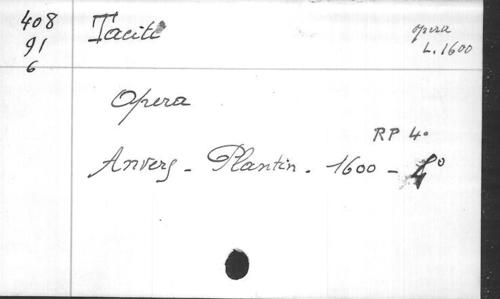 408
91
6
Tacite
opera
L. 1600
Opera
RP 4°
Anvers - Plantin. 1600 - 4°